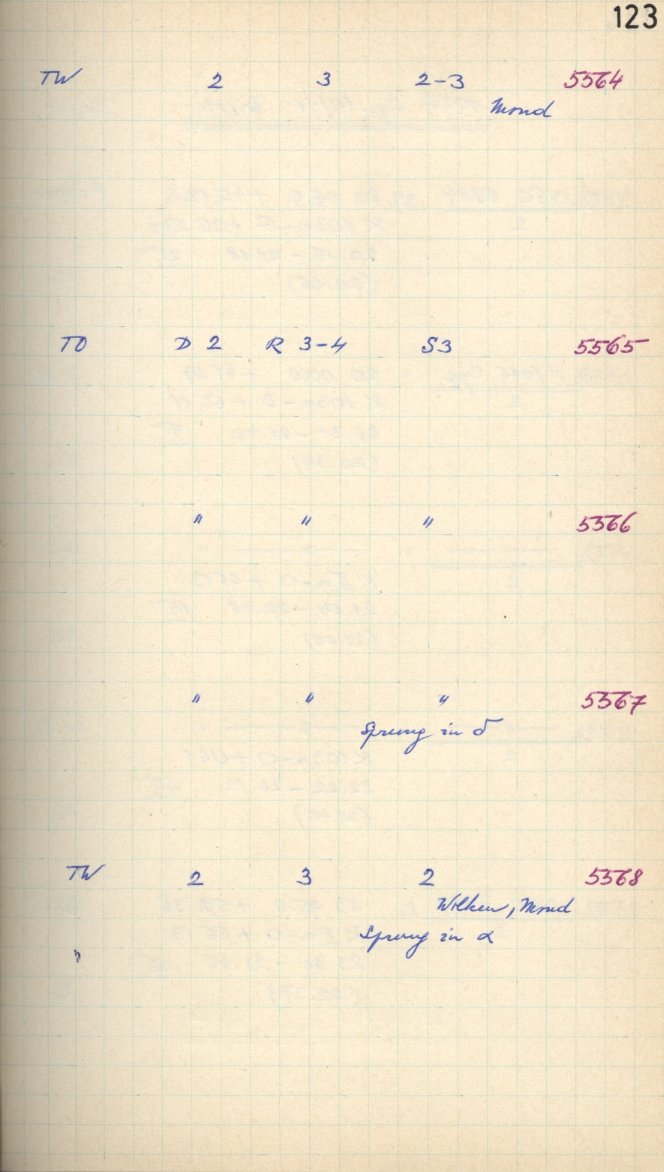 123
TW 2 3 2-3 5564
Mond
TO D 2 R 3-4 S3 5565
" " " 5566
" " " 5567
Sprung in δ
TW 2 3 2 5568
Wolken, Mond
Sprung in α
"